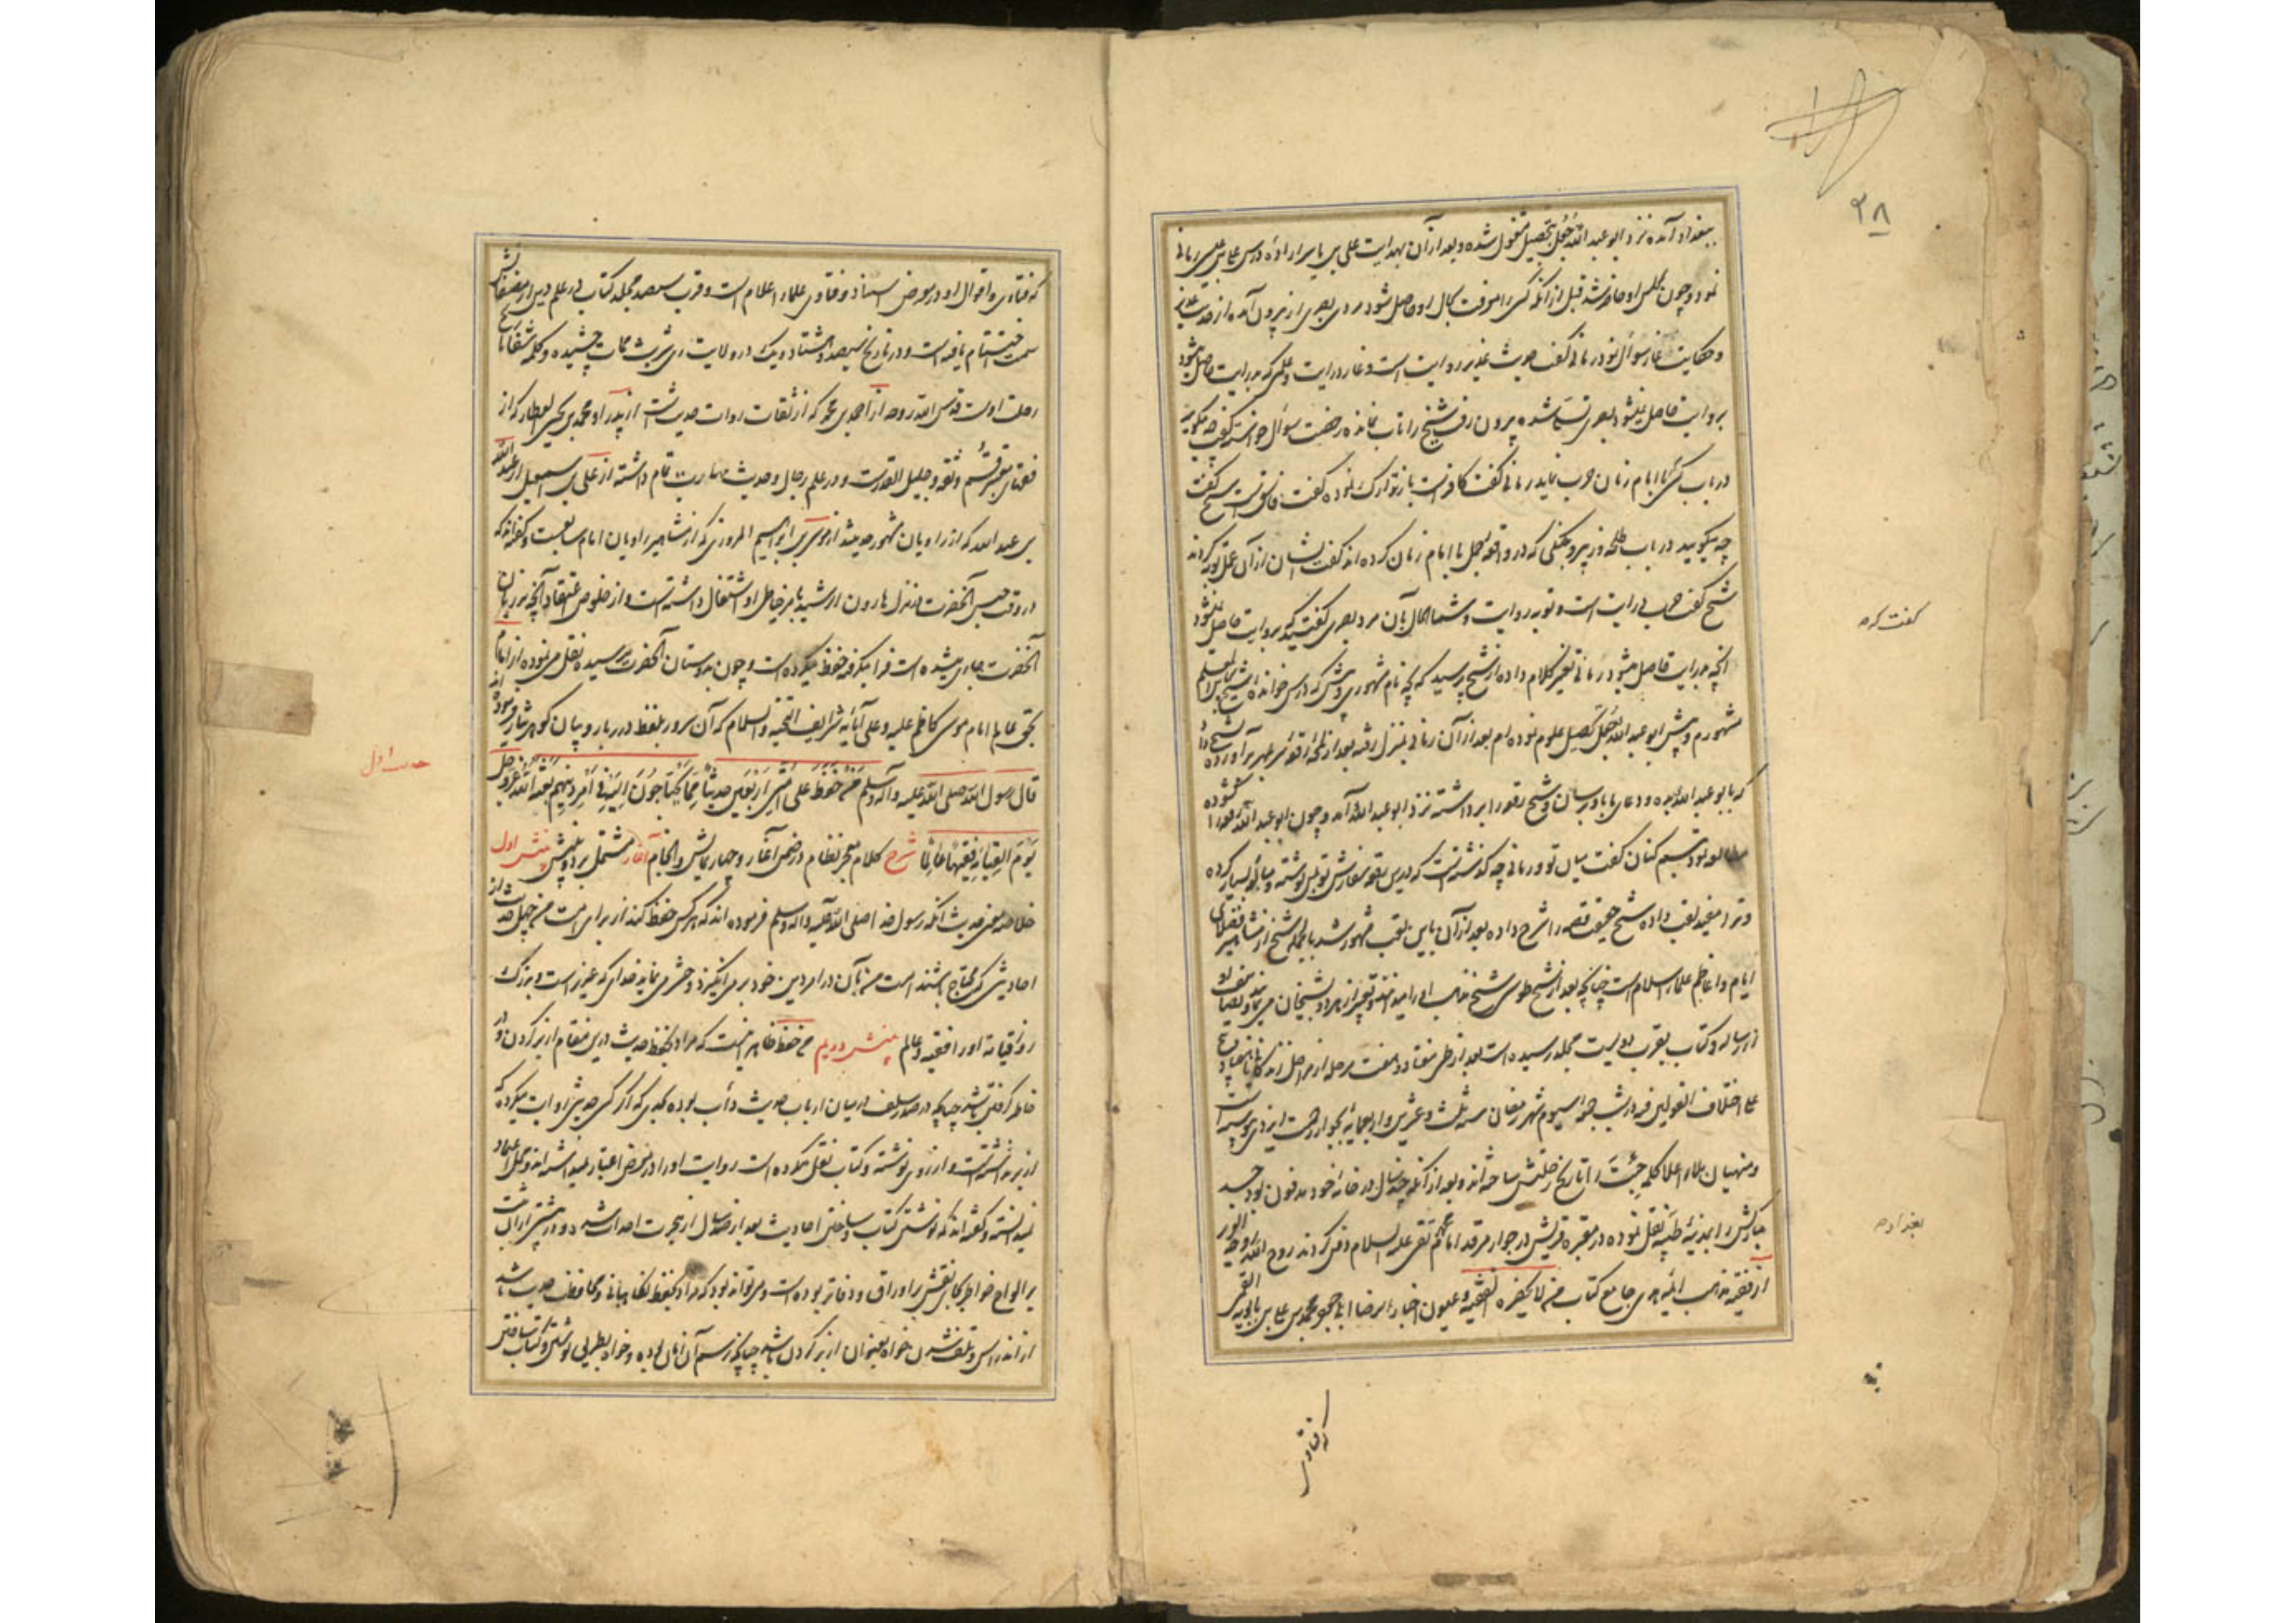 ۳۸
ببغداد آمده نزد ابو عبد الله جُعَل بتحصیل مشغول شده و بعد از آن بهدایت علی بن یاسر اراده درس علی بن عیسی رمانی
نمود و چون بمجلس او حاضر شد قبل از آنکه کسی را معرفت بحال او حاصل شود مردی بصری از
و حکایت غار سؤال نمود رمانی گفت حدیث غدیر روایت است و غار درایت و علمی که بدرایت حاصل میشود
بروایت حاصل نمیشود بصری شده بیرون رفت شیخ را تاب نمانده رخصت سؤال خواسته گفت چه میگویید
در باب کسی که با امام زمان حرب نماید رمانی گفت کافر است باز تدارک نموده گفت فاسق است شیخ گفت
چه میگویید در باب طلحه و زبیر و جنگی که در واقعه جمل با امام زمان کرده اند گفت ایشان از آن عمل توبه کردند
شیخ گفت حرب درایت است و توبه روایت و شما الحال بآن مرد بصری گفتید که بروایت حاصل نمیشود
آنچه بدرایت حاصل میشود رمانی تغییر کلام داده از شیخ پرسید که بچه نام مشهوری و پیش که درس خوانده شیخ گفت بابن المعلم
مشهورم و پیش ابو عبد الله جُعَل تحصیل علوم نموده ام بعد از آن رمانی بمنزل رفته بعد از لمحه رقعه سر بمهر بر آورده بشیخ داد
که بابو عبد الله بده و دعای ما باو برسان و شیخ رقعه را برداشته نزد ابو عبد الله آمد و چون ابو عبد الله رقعه را گشوده
مطالعه نمود تبسم کنان گفت میان تو و رمانی چه گذشته است که درین رقعه سفارش تو بمن نوشته و مبالغه بسیار کرده
و ترا مفید لقب داده شیخ حقیقت قصه را شرح داده بعد از آن باین لقب مشهور شد بالجمله شیخ از مشاهیر فضلای
ایام و اعاظم علماء اسلام است چنانچه بعد از شیخ طوسی شیخ مذهب او را میدانند و تعبیر از هر دو بشیخان مینمایند و تصانیف او
از رساله و کتاب بقرب دویست مجلد رسیده است بعد از طی هفتاد و هفت مرحله از مراحل زندگانی
علی اختلاف القولین در شب جمعه سیوم شهر رمضان سنه ثلث و عشرین و اربعمایه بجوار رحمت ایزدی پیوسته است
و منهیان ملاء اعلا کلمه را تاریخ رحلتش ساخته اند و بعد از آنکه چند سال در خانه خود مدفون بود جسد
مبارکش را بمدینه طیبه نقل نموده در مقبره قریش در جوار مرقد امام محمد تقی علیه السلام دفن کردند روح الله روحه
از فقیه مذهب ائمه هدی جامع کتاب من لا یحضره الفقیه و عیون اخبار الرضا ابی جعفر محمد بن علی بن بابویه القمی
گفت که
بغداد
که فتاوی
که فتاوی و اقوال او در معرض استناد فتاوی علماء اعلام است و قرب سیصد مجلد کتاب در علم دین از مصنفاتش
سمت اختتام یافته است و در تاریخ سیصد و هشتاد و یک در ولایت ری شربت ممات چشیده و کلمه
رحلت اوست قدس الله روحه از احمد بن محمد که از ثقات روات حدیث است از پدر او محمد بن یحیی العطار که از
فقهای معتبر قم و ثقه و جلیل القدر است و در علم رجال و حدیث مهارت تمام داشته از علی بن اسمعیل از عبد الله
بن عبد الله که از راویان مشهور حدیثند از موسی بن ابراهیم المروزی که از مشاهیر راویان امام سابعست و گفته اند که
در وقت حبس آنحضرت در منزل هارون الرشید بامر خاطر او اشتغال داشته است و از خلوص اعتقاد آنچه بر زبان
آنحضرت جاری میشده است فرا میگرفته و حفظ میکرده است و چون بدوستان آنحضرت میرسیده نقل می نموده از امام
بحق عابد امام موسی کاظم علیه و علی آبائه شرایف التحیة و السلام که آن سرور بلفظ درر بار و بیان گوهر نثار فرموده اند
قال رسول الله صلی الله علیه و آله و سلم مَنْ حَفِظَ عَلی اُمَّتی اَرْبَعینَ حَدیثاً مِمّا یَحْتاجُونَ اِلَیْهِ فی اَمْرِ دینِهِم بَعَثَهُ اللهُ عَزَّ وَ جَلَّ
یَوْمَ القِیامَةِ فَقیهاً عالِماً شرح کلام معجز نظام در ضمن آغاز و چهار نمایش و انجام آغاز مشتمل بر دو بینش بینش اول
خلاصه معنی حدیث آنکه رسول خدا صلی الله علیه و اله و سلم فرموده اند که هر کس حفظ کند از برای امت من چهل حدیث از
احادیثی که محتاج باشند امت من بآن در امر دین خود بر می انگیزد و حشر می نماید خدای که عزیز است و بزرگ
روز قیامت او را فقیه و عالم بینش دویم من حفظ ظاهر اینست که مراد بحفظ حدیث درین مقام از بر کردن و در
خاطر گرفتن باشد چنانچه در صدر سلف در میان ارباب حدیث دأب بوده بحدی که اگر کسی حدیثی روایت میکرده که
از بر نداشته است و از روی نوشته و کتاب نقل میکرده است روایت او را در معرض اعتبار نمیداشته اند و محل اعتماد
نمیدانسته و گفته اند که نوشتن کتاب و ساختن احادیث بعد از صد سال از هجرت احداث شده و در پیشتر از آن
بر الواح خواطر بجای نقش بر اوراق و دفاتر بوده است و می تواند بود که مراد بحفظ نگاهبانی و محافظت حدیث باشد
از اندراس و تلف شدن خواه بعنوان از بر کردن باشد چنانچه رسم آن زمان بوده و خواه بطریق نوشتن و کتاب ساختن
حدیث اول